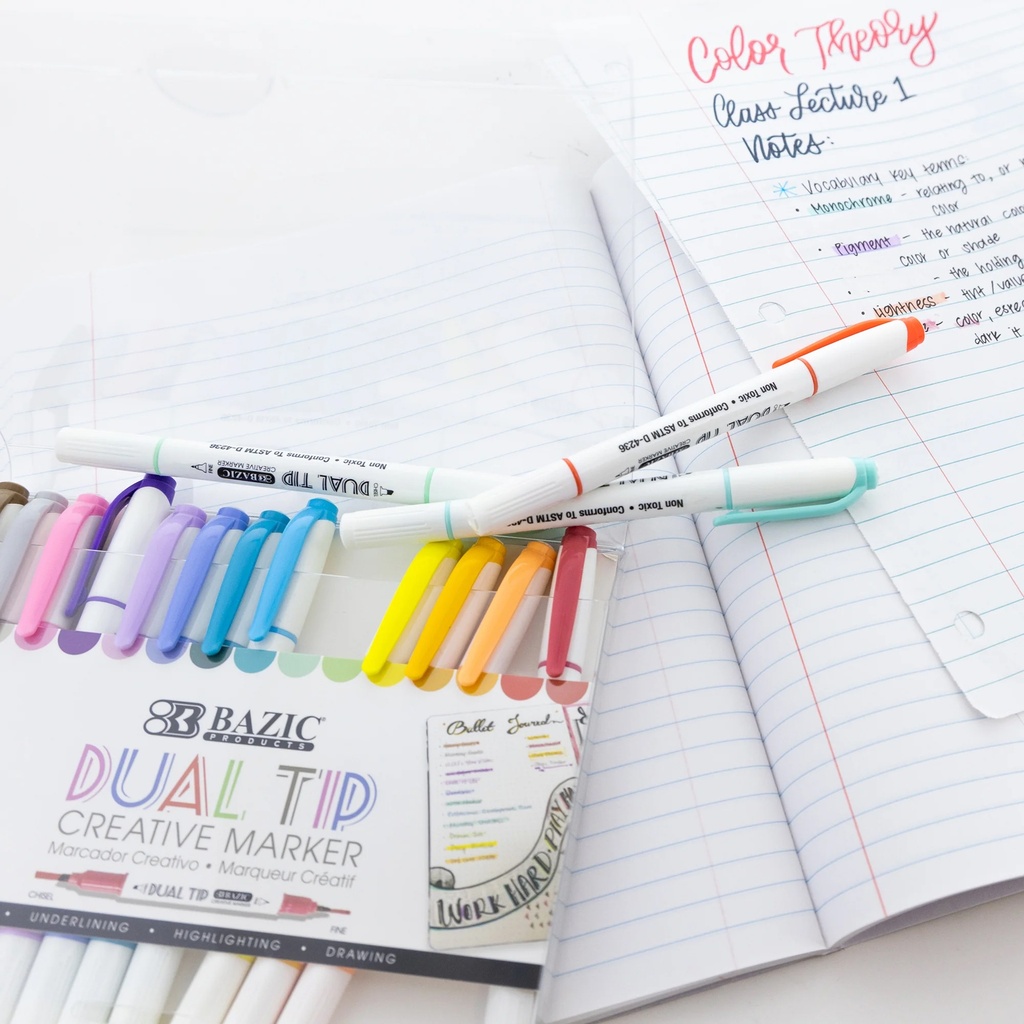 Color Theory
Class Lecture 1
Notes:
Vocabulary key terms:
• Monochrome - relating to, or
color
• Pigment - the natural
color or shade
- the holding
• Lightness - tint/value
- color,
dark it
Non Toxic • Conforms To ASTM D-4236
DUAL TIP
CREATIVE MARKER
Non Toxic • Conforms To ASTM D-4236
DUAL TIP
BAZIC
CREATIVE MARKER
CHISEL
Non Toxic • Conforms To ASTM
BAZIC
PRODUCTS
DUAL TIP
CREATIVE MARKER
Marcador Creativo • Marqueur Créatif
CHISEL
DUAL TIP
BAZIC
FINE
• UNDERLINING • HIGHLIGHTING • DRAWING
"Bullet Journal"
WORK HARD PLAY